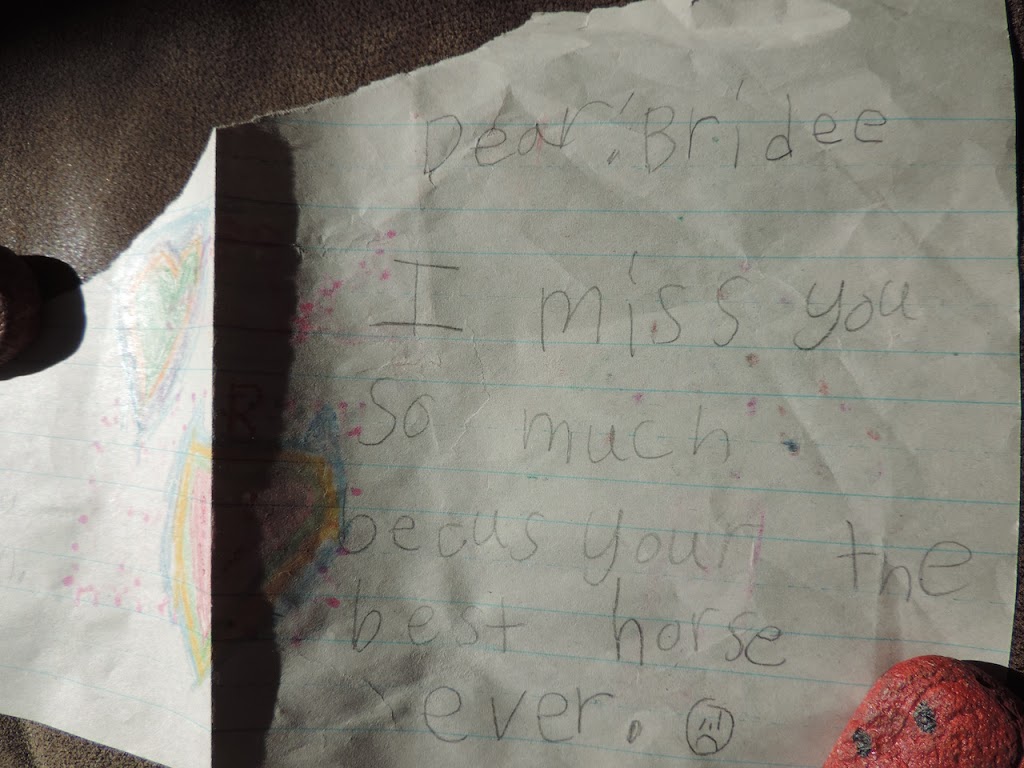 Dear: Bridee
I miss you
So much
becus your the
best horse
ever.
R